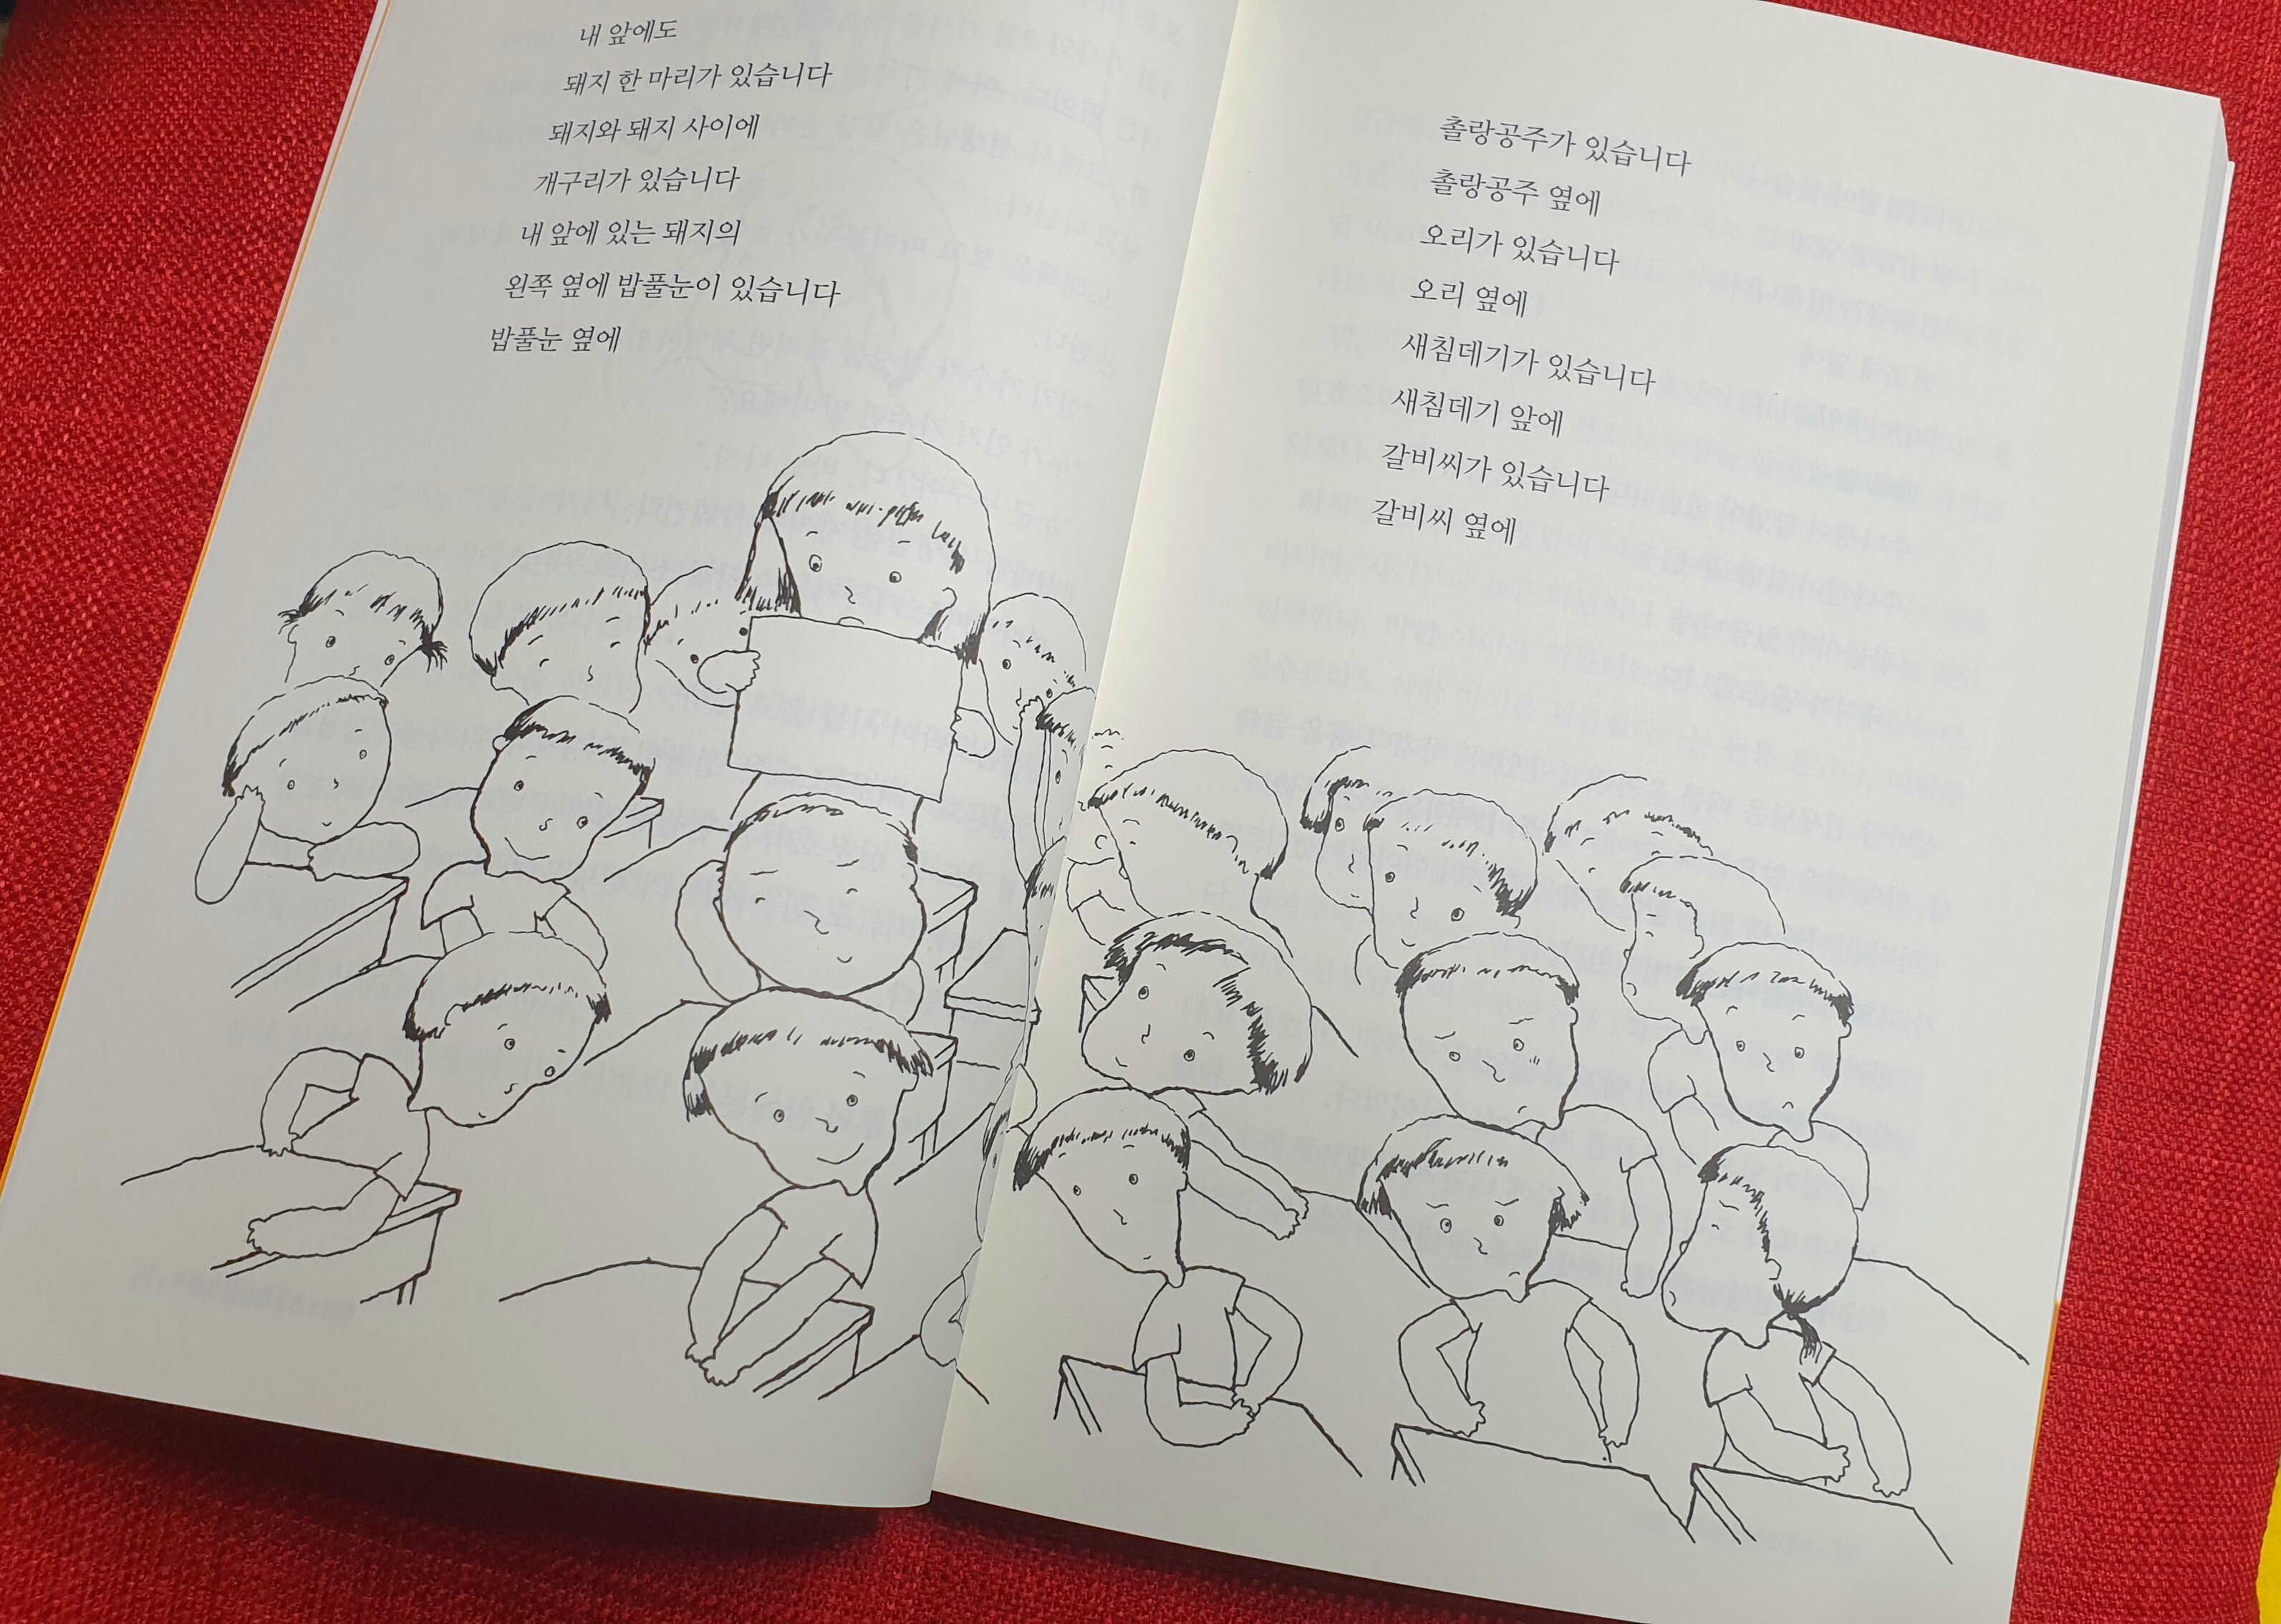 내 앞에도
돼지 한 마리가 있습니다
돼지와 돼지 사이에
개구리가 있습니다
내 앞에 있는 돼지의
왼쪽 옆에 밥풀눈이 있습니다
밥풀눈 옆에
촐랑공주가 있습니다
촐랑공주 옆에
오리가 있습니다
오리 옆에
새침데기가 있습니다
새침데기 앞에
갈비씨가 있습니다
갈비씨 옆에